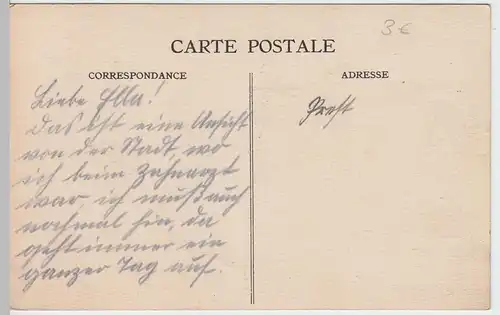 3€
CARTE POSTALE
CORRESPONDANCE
ADRESSE
Liebe Ella!
Das ist eine Ansicht
von der Stadt, wo
ich beim Zahnarzt
war, ich muß auch
nochmal hin, da
geht immer ein
ganzer Tag auf.